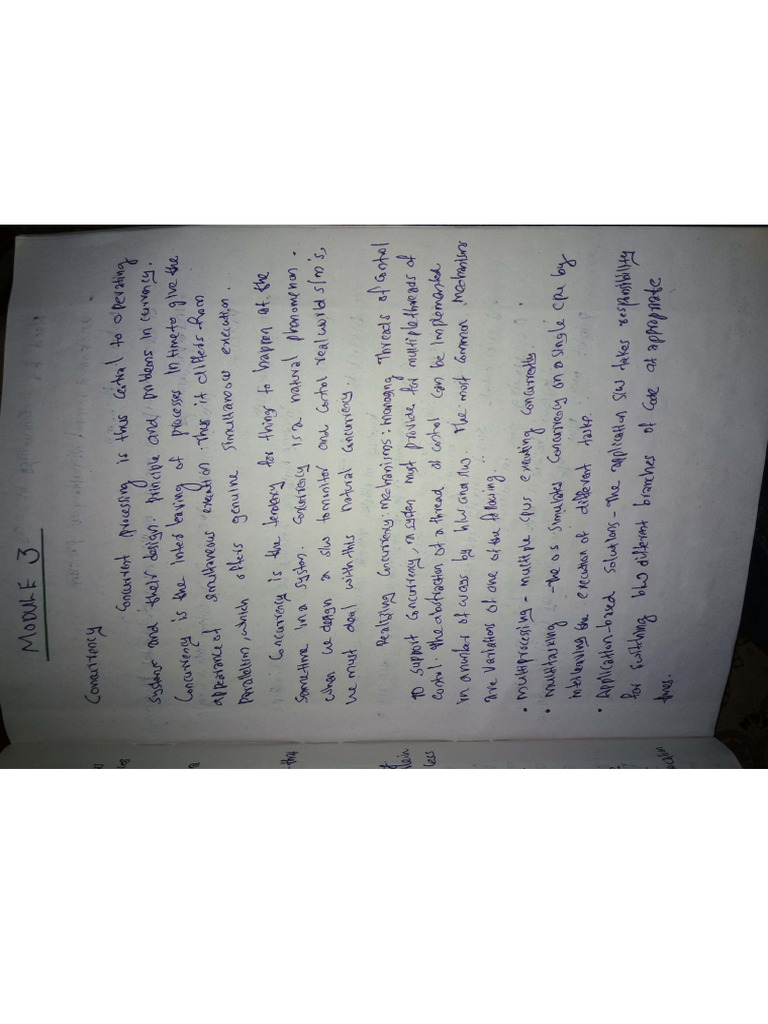 MODULE 3
Concurrency
Concurrent processing is thus cetral to operating
systems and their design. principle and problems in currency.
Concurrency is the inter leaving of processes in time to give the
appearance of simultaneous execution. Thus it differs from
parallelism, which offers genuine simultaneous execution.
Concurrency is the tendency for things to happen at the
sometime in a system. Concurrency is a natural phenomenon.
When we design a s/w to monitor and control real world s/m's,
we must deal with this natural concurrency.
Realizing Concurrency: mechanisms: managing Threads of control
To support concurrency, a system must provide for multiple threads of
control. The abstraction of a thread of control can be implemented
in a number of ways by h/w and s/w. The most common mechanisms
are variations of one of the following:
• multiprocessing - multiple cpus executing concurrently
• multitasking - the os simulates concurrency on a single cpu by
interleaving the execution of different tasks.
• Application-based solutions - The application s/w takes responsibility
for switching b/w different branches of code at appropriate
times.